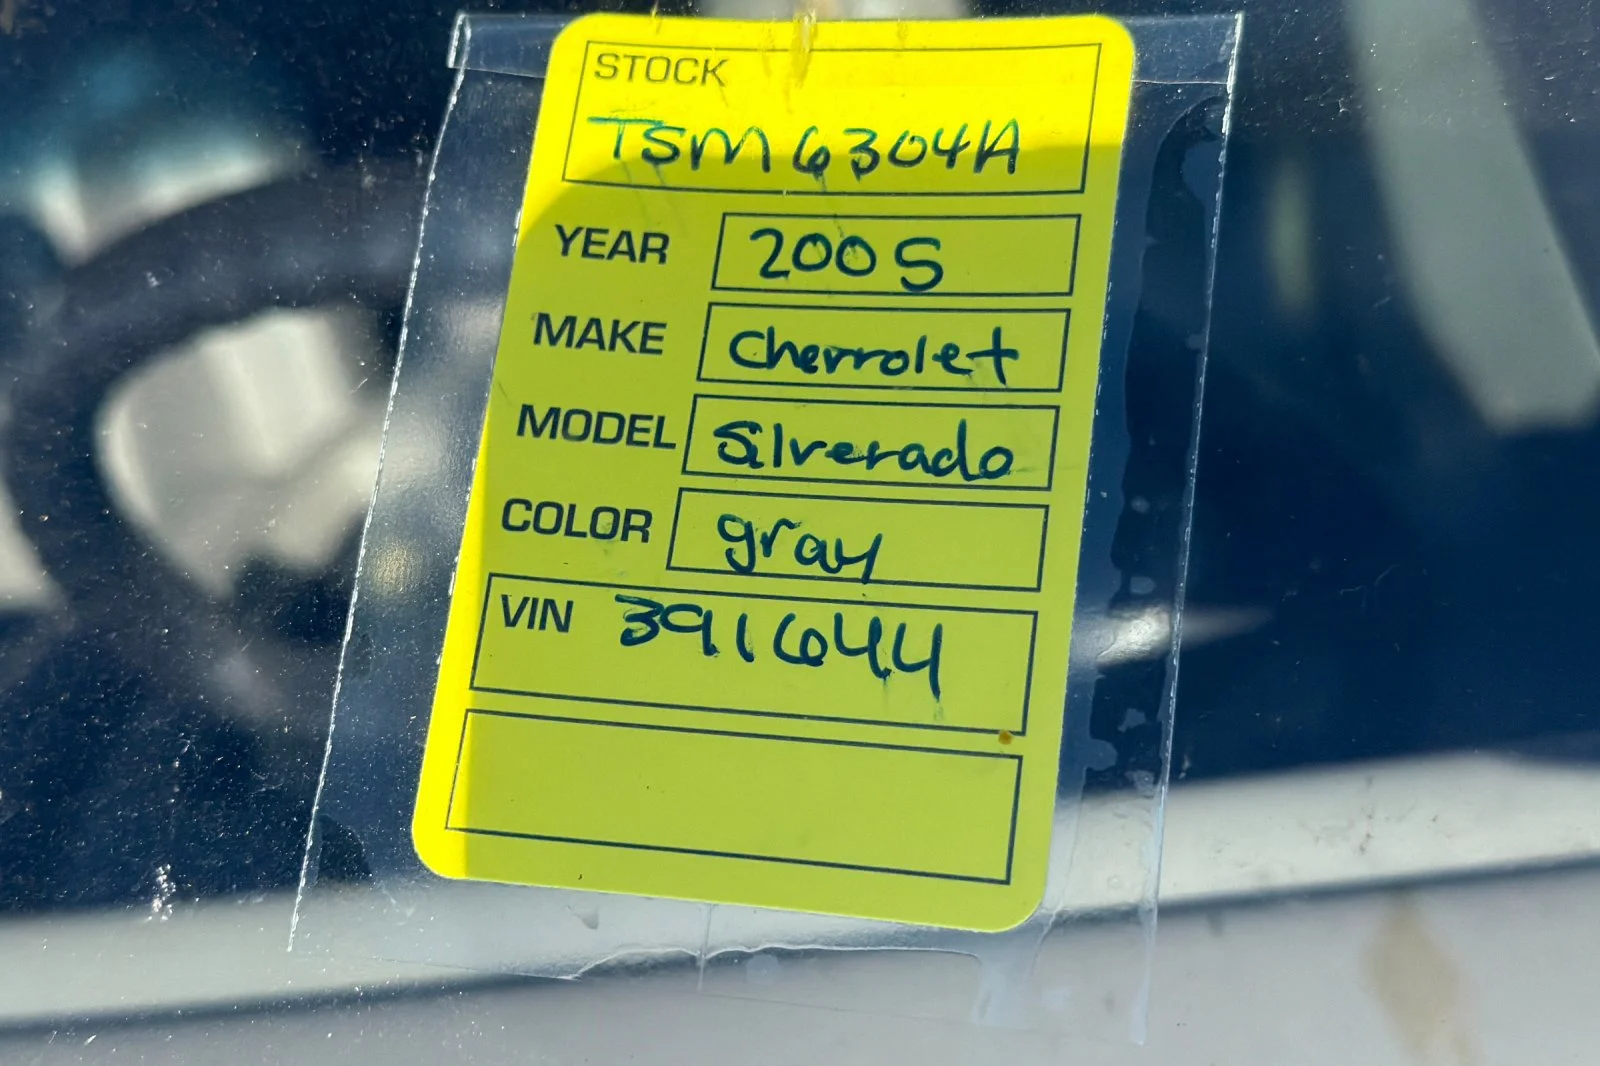 STOCK
TSM6304A
YEAR 2005
MAKE Chevrolet
MODEL Silverado
COLOR gray
VIN 391644